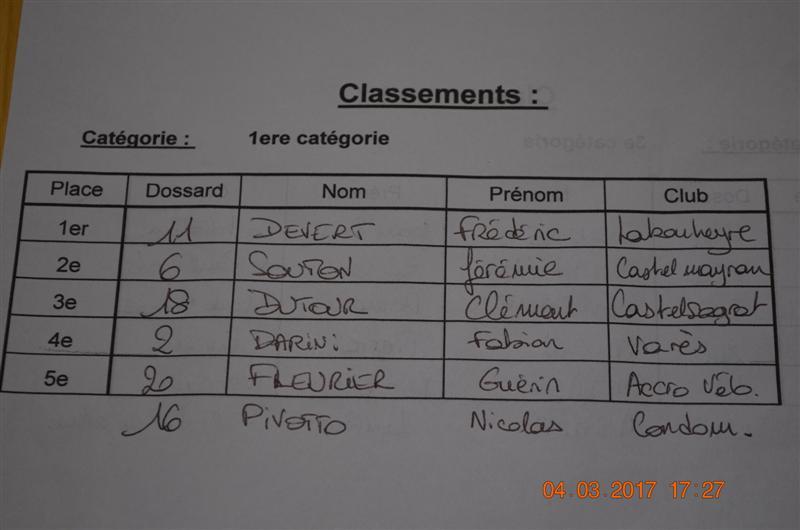 Classements :
Catégorie : 1ere catégorie
Place Dossard Nom Prénom Club
1er 11 DEVERT Frédéric Labouheyre
2e 6 SOUTON Jérémie Castelmayran
3e 18 DUTOUR Clémont Castelsagrat
4e 2 DARINI Fabian Varès
5e 20 FLEURIER Guérin Accro Vélo.
16 PIVETTO Nicolas Condom.
04.03.2017 17:27